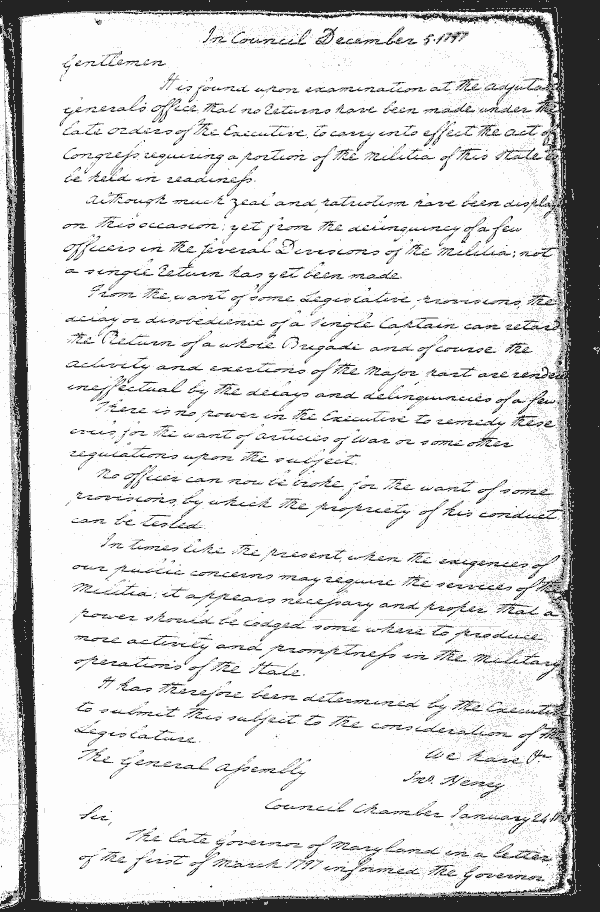 In Council December 5. 1797
Gentlemen
It is found upon examination at the Adjutant
General's office that no Returns have been made under the
late orders of the Executive to carry into effect the Act of
Congress requiring a portion of the Militia of this State to
be held in readiness.
Although much zeal and patriotism have been display
on this occasion; yet from the delinquency of a few
officers in the several Divisions of the Militia; not
a single Return has yet been made
From the want of some Legislative provisions, the
delay or disobedience of a single Captain can retard
the Return of a whole Brigade and of course the
activity and exertions of the Major part are render
ineffectual by the delays and delinquencies of a few
There is no power in the Executive to remedy these
evils for the want of articles of War or some other
regulations upon the subject.
No officer can now be broke for the want of some
provisions by which the propriety of his conduct
can be tested.
In times like the present, when the exigences of
our public concerns may require the services of the
Militia; it appears necessary and proper that a
power should be lodged some where to produce
more activity and promptness in the Military
operations of the State.
It has therefore been determined by the Executive
to submit this subject to the consideration of the
Legislature.
We have &c
The General Assembly
Jno. Henry
Council Chamber January 24
Sir,
The late Governor of Maryland in a letter
of the first of March 1797 informed the Governor